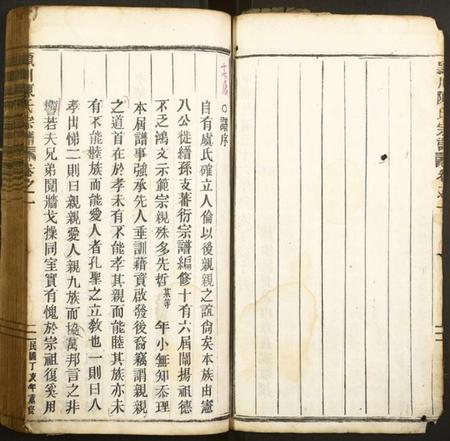 穎川陳氏宗譜 卷之一
譜序
自有虞氏確立人倫以後親親之誼尙矣本族由憲
八公徙縉孫支蕃衍宗譜編修十有六屆闡揚祖德
不乏鴻文示範宗親殊多先哲某等 年小無知忝理
本屆譜事強承先人垂訓藉資啟發後裔竊謂親親
之道首在於孝未有不能孝其親而能睦其族亦未
有不能睦族而能愛人者孔聖之立敎也一則曰入
孝出悌二則曰親親愛人親九族而協萬邦言之非
響若夫兄弟鬩牆戈操同室實有愧於宗祖復奚用
潁川陳氏宗譜 卷之一
民國丁亥年重修